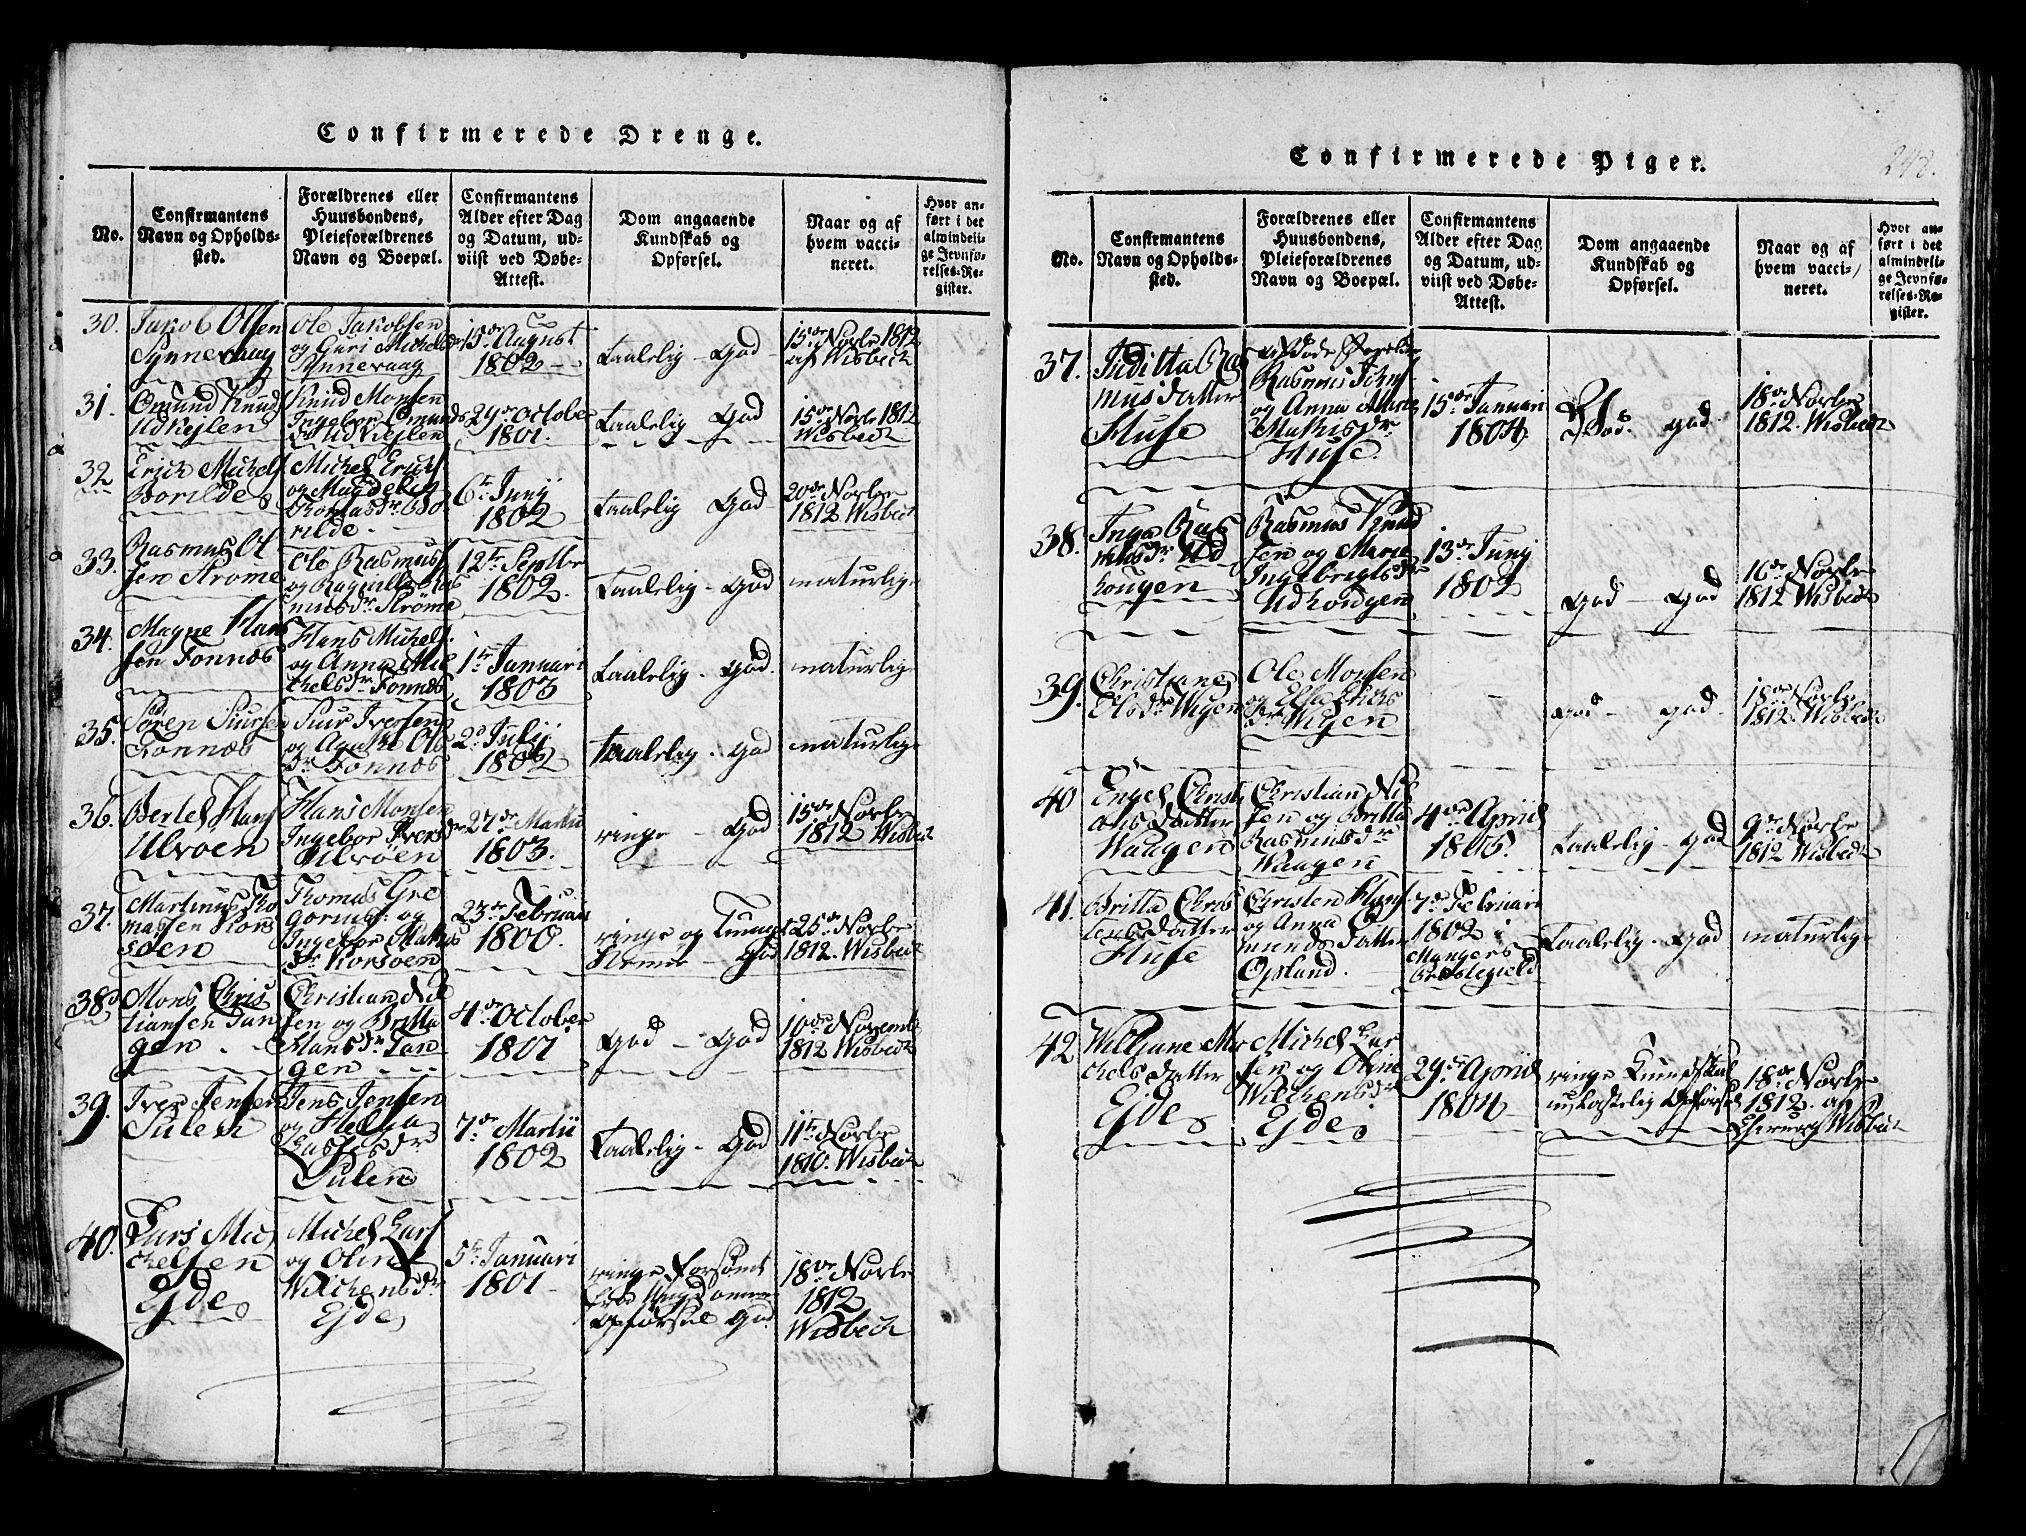 Confirmerede Drenge.
No.
Confirmantens
Navn og Opholds-
sted.
Forældrenes eller
Huusbondens,
Pleieforældrenes
Navn og Boepæl.
Confirmantens
Alder efter Dag
og Datum, ud-
viist ved Døbe-
Attest.
Dom angaaende
Kundskab og
Opførsel.
Naar og af
hvem vacci-
neret.
Hvor an-
ført i det
almindeli-
ge Jevnfø-
relses-Re-
gister.
30.
Jakob Olsen
Synnevaag
Ole Jakobsen
og Guri Michelsdr
Synnevaag
15de August
1802
taalelig - God
15de Novbr 1812
af Wisbech
31.
Omund Knuds
Udkejlen
Knud Monsen
Ingebor Omunds
dr Udkejlen
29de October
1801.
taalelig God
15de Novbr 1812
Wisbech
32
Erich Michels.
Borilde
Michel Erichs.
og Magdelen
Thomasdr Bo
rilde
6te Junij
1802
taalelig God
20de Novbr
1812 Wisbech
33.
Rasmus Ol
sen Strøme
Ole Rasmuss.
og Ragnille Ras
musdr Strøme
12te Septbr
1802.
taalelig - God
naturlige
34.
Magne Han
sen Fonnes
Hans Michels.
og Anna Mi
chelsdr Fonnes
1te Januari
1803
taalelig - God.
naturlig
35.
Søren Siursen
Fonnæs
Siur Iversen
og Agathe Ols
dr Fonnæs
2d Julij
1802
taalelig - God
naturlige
36.
Bertel Hans
Ulvøen
Hans Monsen
Ingebor Iversdr
Ulvøen
27de Martii
1803.
ringe - God
15de Novbr
1812 Wisbech
37.
Martinus Tho
massen Kors
øen
Thomas Gre
gorius: og
Ingebor Mathis
dr Korsøen
23de Februari
1800.
ringe og
God
25de Novbr
1812. Wisbech
38
Mons Chris
tiansen Tan
gen
Christian Nil
sen og Britta
Hansdr Tan
gen
4de October
1801
God - God
10de Novemb
1812 Wisbech
39.
Iver Jensen
Sulen
Jens Jensen
og Helga
Lassesdr
Sulen
7de Martii
1802
taalelig - God
11te Novbr
1810. Wisbech
40.
Lars Mi
chelsen
Ejde
Michel Lars
og Oline
Wilchensdr
Ejde
5te Januari
1801
ringe forsømt
fra Ungdommen
Opførsel God.
18de Novbr
1812
Wisbech
Confirmerede Piger.
248.
No.
Confirmantens
Navn og Opholds-
sted.
Forældrenes eller
Huusbondens,
Pleieforældrenes
Navn og Boepæl.
Confirmantens
Alder efter Dag
og Datum, ud-
viist ved Døbe-
Attest.
Dom angaaende
Kundskab og
Opførsel.
Naar og af
hvem vacci-
neret.
Hvor an-
ført i det
almindeli-
ge Jevnfø-
relses-Re-
gister.
37.
Juditta Ras
mus datter
Huse
Rasmus Johns.
og Anna Marie
Mathisdr
Huse.
15de Januari
1804
God. God.
18de Novbr
1812. Wisbech
38.
Inga Ras
musdr Ud
kougen
Rasmus Knud
sen og Marie
Ingebrigtsdr
Udkougen
13de Junj
1802
God - God
16de Novbr
1812 Wisbech
39.
Christiane
Olsdr Wigen
Ole Monsen
og Elsa Erichs
dr Wigen
God - God
18de Novbr
1812. Wisbech
40
Engel Christi
ans datter
Waagen
Christian Nil
sen og Britta
Rasmusdr
Waagen
4de Apriil
1805.
taalelig - God
9de Novbr
1812 Wisbech
41.
Britta Chris
tens datter
Huse
Christen Hans.
og Anna
munds datter
Opsland.
7de Februari
1802 i
Mangers
Præstegield
taalelig. God
naturlig
42
Wiljane Mi
chels datter
Ejde
Michel Lar
sen og Oline
Wilchensdr
Ejde
29de Apriil
1804
ringe Kundskab
uskostelig Opførsel
18de Novbr
1812. af
Wisbech